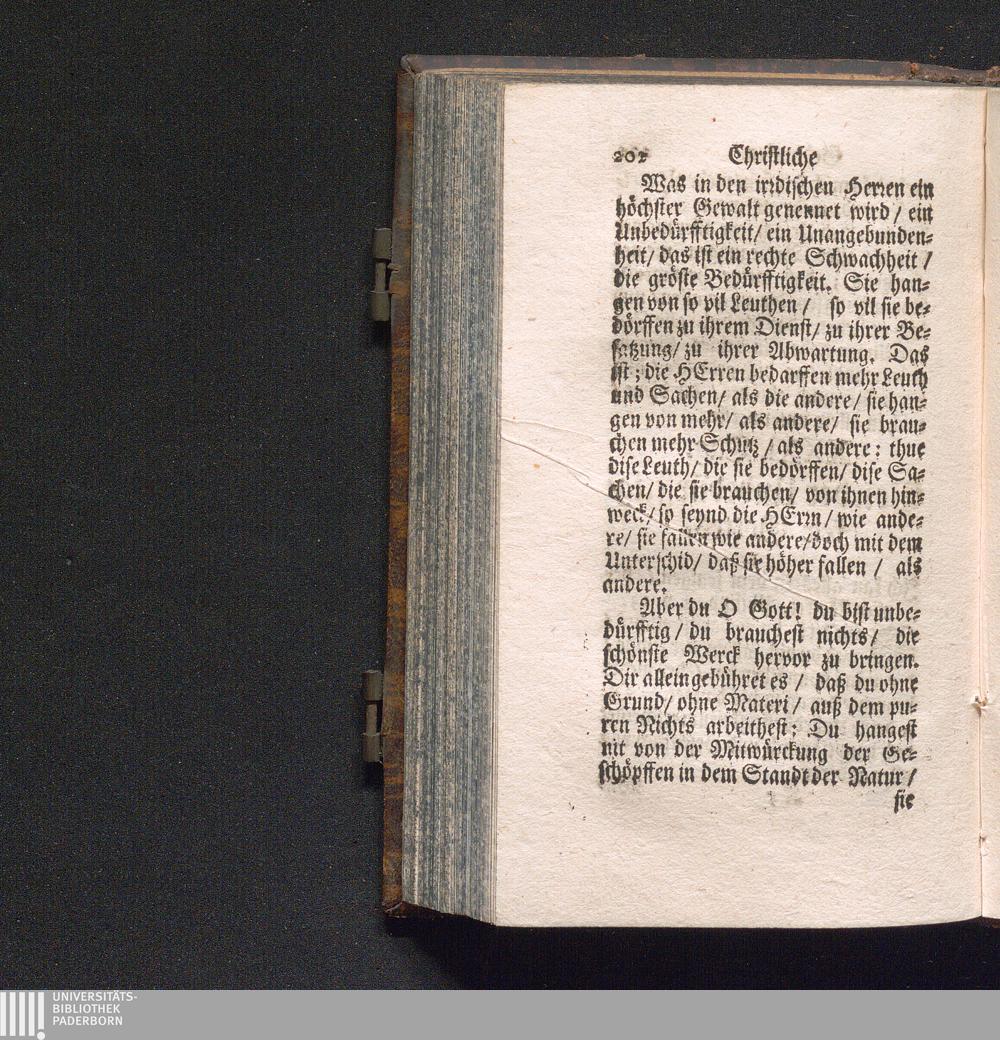 202 Christliche
Was in den irꝛdischen Herꝛen ein
höchster Gewalt genennet wird / ein
Unbedürfftigkeit / ein Unangebunden-
heit / das ist ein rechte Schwachheit /
die gröste Bedürfftigkeit. Sie han-
gen von so vil Leuthen / so vil sie be-
dörffen zu ihrem Dienst / zu ihrer Be-
satzung / zu ihrer Abwartung. Das
ist ; die HErren bedarffen mehr Leuth
und Sachen / als die andere / sie han-
gen von mehr / als andere / sie brau-
chen mehr Schutz / als andere : thue
dise Leuth / die sie bedörffen / dise Sa-
chen / die sie brauchen / von ihnen hin-
weck / so seynd die HErꝛn / wie ande-
re / sie fallen wie andere / doch mit dem
Unterschid / daß sie höher fallen / als
andere.
Aber du O Gott! du bist unbe-
dürfftig / du brauchest nichts / die
schönste Werck hervor zu bringen.
Dir allein gebühret es / daß du ohne
Grund / ohne Materi / auß dem pu-
ren Nichts arbeithest ; Du hangest
nit von der Mitwürckung der Ge-
schöpffen in dem Standt der Natur /
sie
UNIVERSITÄTS-
BIBLIOTHEK
PADERBORN